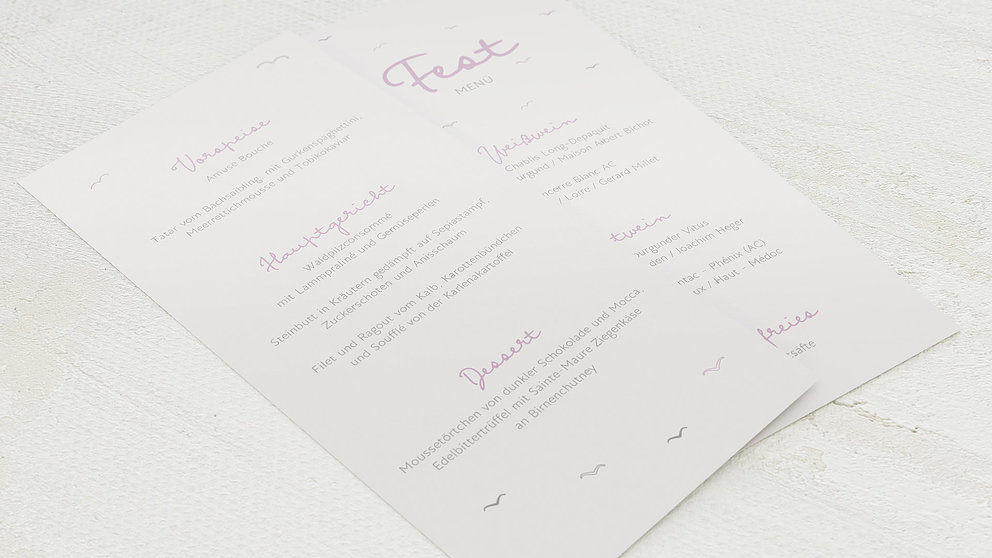 Vorspeise
Amuse Bouche
Tatar vom Bachsaibling, mit Gurkenspaghettini,
Meerrettichmousse und Tobikokaviar
Hauptgericht
Waldpilzconsommé
mit Lammpraliné und Gemüseperlen
Steinbutt in Kräutern gedämpft auf Sepiastampf,
Zuckerschoten und Anisschaum
Filet und Ragout vom Kalb, Karottenbündchen
und Soufflé von der Karlenakartoffel
Dessert
Moussetörtchen von dunkler Schokolade und Mocca,
Edelbittertrüffel mit Sainte-Maure Ziegenkäse
an Birnenchutney
Fest
MENÜ
Weißwein
Chablis Long-Depaquit
urgund / Maison Albert Bichot
ncerre Blanc AC
/ Loire / Gerard Millet
twein
urgunder Vitus
den / Joachim Heger
ntac - Phénix (AC)
ux / Haut - Médoc
freies
säfte